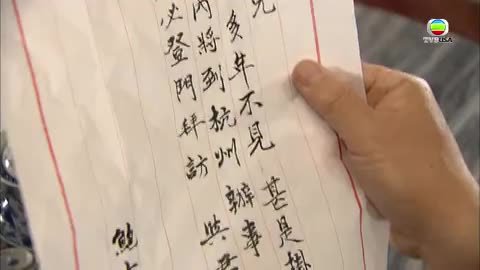 兄
多年不見 甚是掛
內將到杭州辦事 與
必登門拜訪
熊
TVB USA